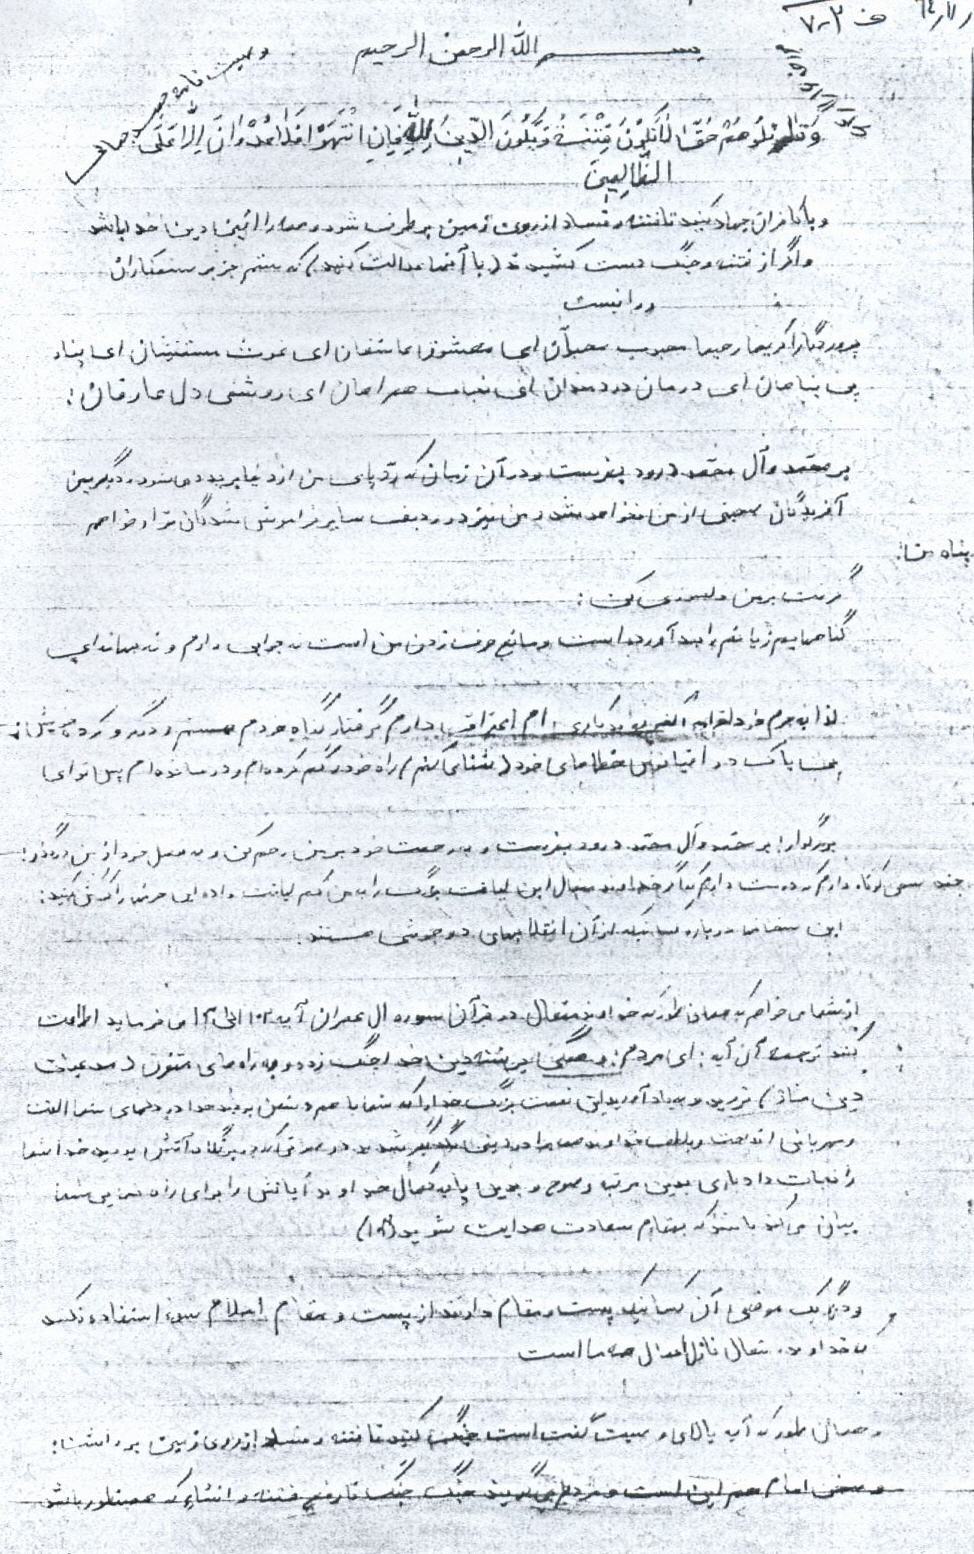 ف ۷۰۳
بسم الله الرحمن الرحیم
وصیت نامه
وَقَاتِلُوهُمْ حَتَّىٰ لَا تَكُونَ فِتْنَةٌ وَيَكُونَ الدِّينُ لِلَّهِ فَإِنِ انْتَهَوْا فَلَا عُدْوَانَ إِلَّا عَلَى
الظَّالِمِينَ
و با کافران جهاد کنید تا فتنه و فساد از روی زمین بر طرف شود و همه را آئین دین خدا باشد
و اگر از فتنه و جنگ دست کشیدند (با آنها عدالت کنید) که ستم جز بر ستمکاران
روا نیست
پروردگارا کریما رحیما محبوب محبان ای معشوق عاشقان ای غوث مستغیثان ای پناه
بی پناهان ای درمان دردمندان ای نجات همراهان ای روشنی دل عارفان!
بر محمد و آل محمد درود بفرست و در آن زمان که رد پای من از دنیا بریده می شود و دیگر بین
آفریدگان سخنی از من نخواهد شد و من نیز در ردیف سایر فراموش شدگان قرار خواهم
پناه من!
بر من دلسوزی کن:
گناهانم زبانم را بند آورده است و مانع حرف زدن من است نه جوابی دارم و نه بهانه ای
لذا به جرم خود اعتراف دارم گرفتار گناه خودم هستم و در گرو کرده خویش
خطاهای خود راه خود را گم کرده ام و درمانده ام پس تو ای
بزرگوار! بر محمد و آل محمد درود بفرست و به رحمت خود بر من رحم کن و به فضل خود از من درگذر!
چند سخن کوتاه دارم که دوست دارم خداوند متعال این لیاقت بزرگ را به من کم لیاقت داده
این سخنان درباره کسانیکه از آن انقلابهای دو جوشی هستند.
از شما می خواهم که همان طور که خداوند متعال در قرآن سوره آل عمران آیه ۱۰۳ می فرماید اطاعت
کنید ترجمه آن آیه: ای مردم: و همگی به رشته دین خدا چنگ زده و به راه های متفرق (مدعیان
دین ساز) نروید و به یاد آورید این نعمت بزرگ خدا را که شما با هم دشمن بودید خدا در دلهای شما الفت
و مهربانی انداخت و به لطف خداوند همه برادر دینی یکدیگر شدید در صورتی که در پرتگاه آتش بودید خدا شما
را نجات داد باری بدین مرتبه وضوح و بدین پایه کمال خداوند آیاتش را برای راه نمایی شما
بیان می کند باشد که به مقام سعادت هدایت شوید (۱۰۳)
و دیگر یک عرضی آن کسانیکه پست و مقام دارند از پست و مقام اسلام سوء استفاده نکنند
که خداوند متعال ناظر اعمال همه ما است
و همان طور که آیه بالای وصیت گفته است جنگ کنید تا فتنه و فساد از روی زمین بر داشته:
و سخن امام هم این است و مردم می گویند جنگ جنگ تا رفع فتنه و انشاءالله که همینطور باشد